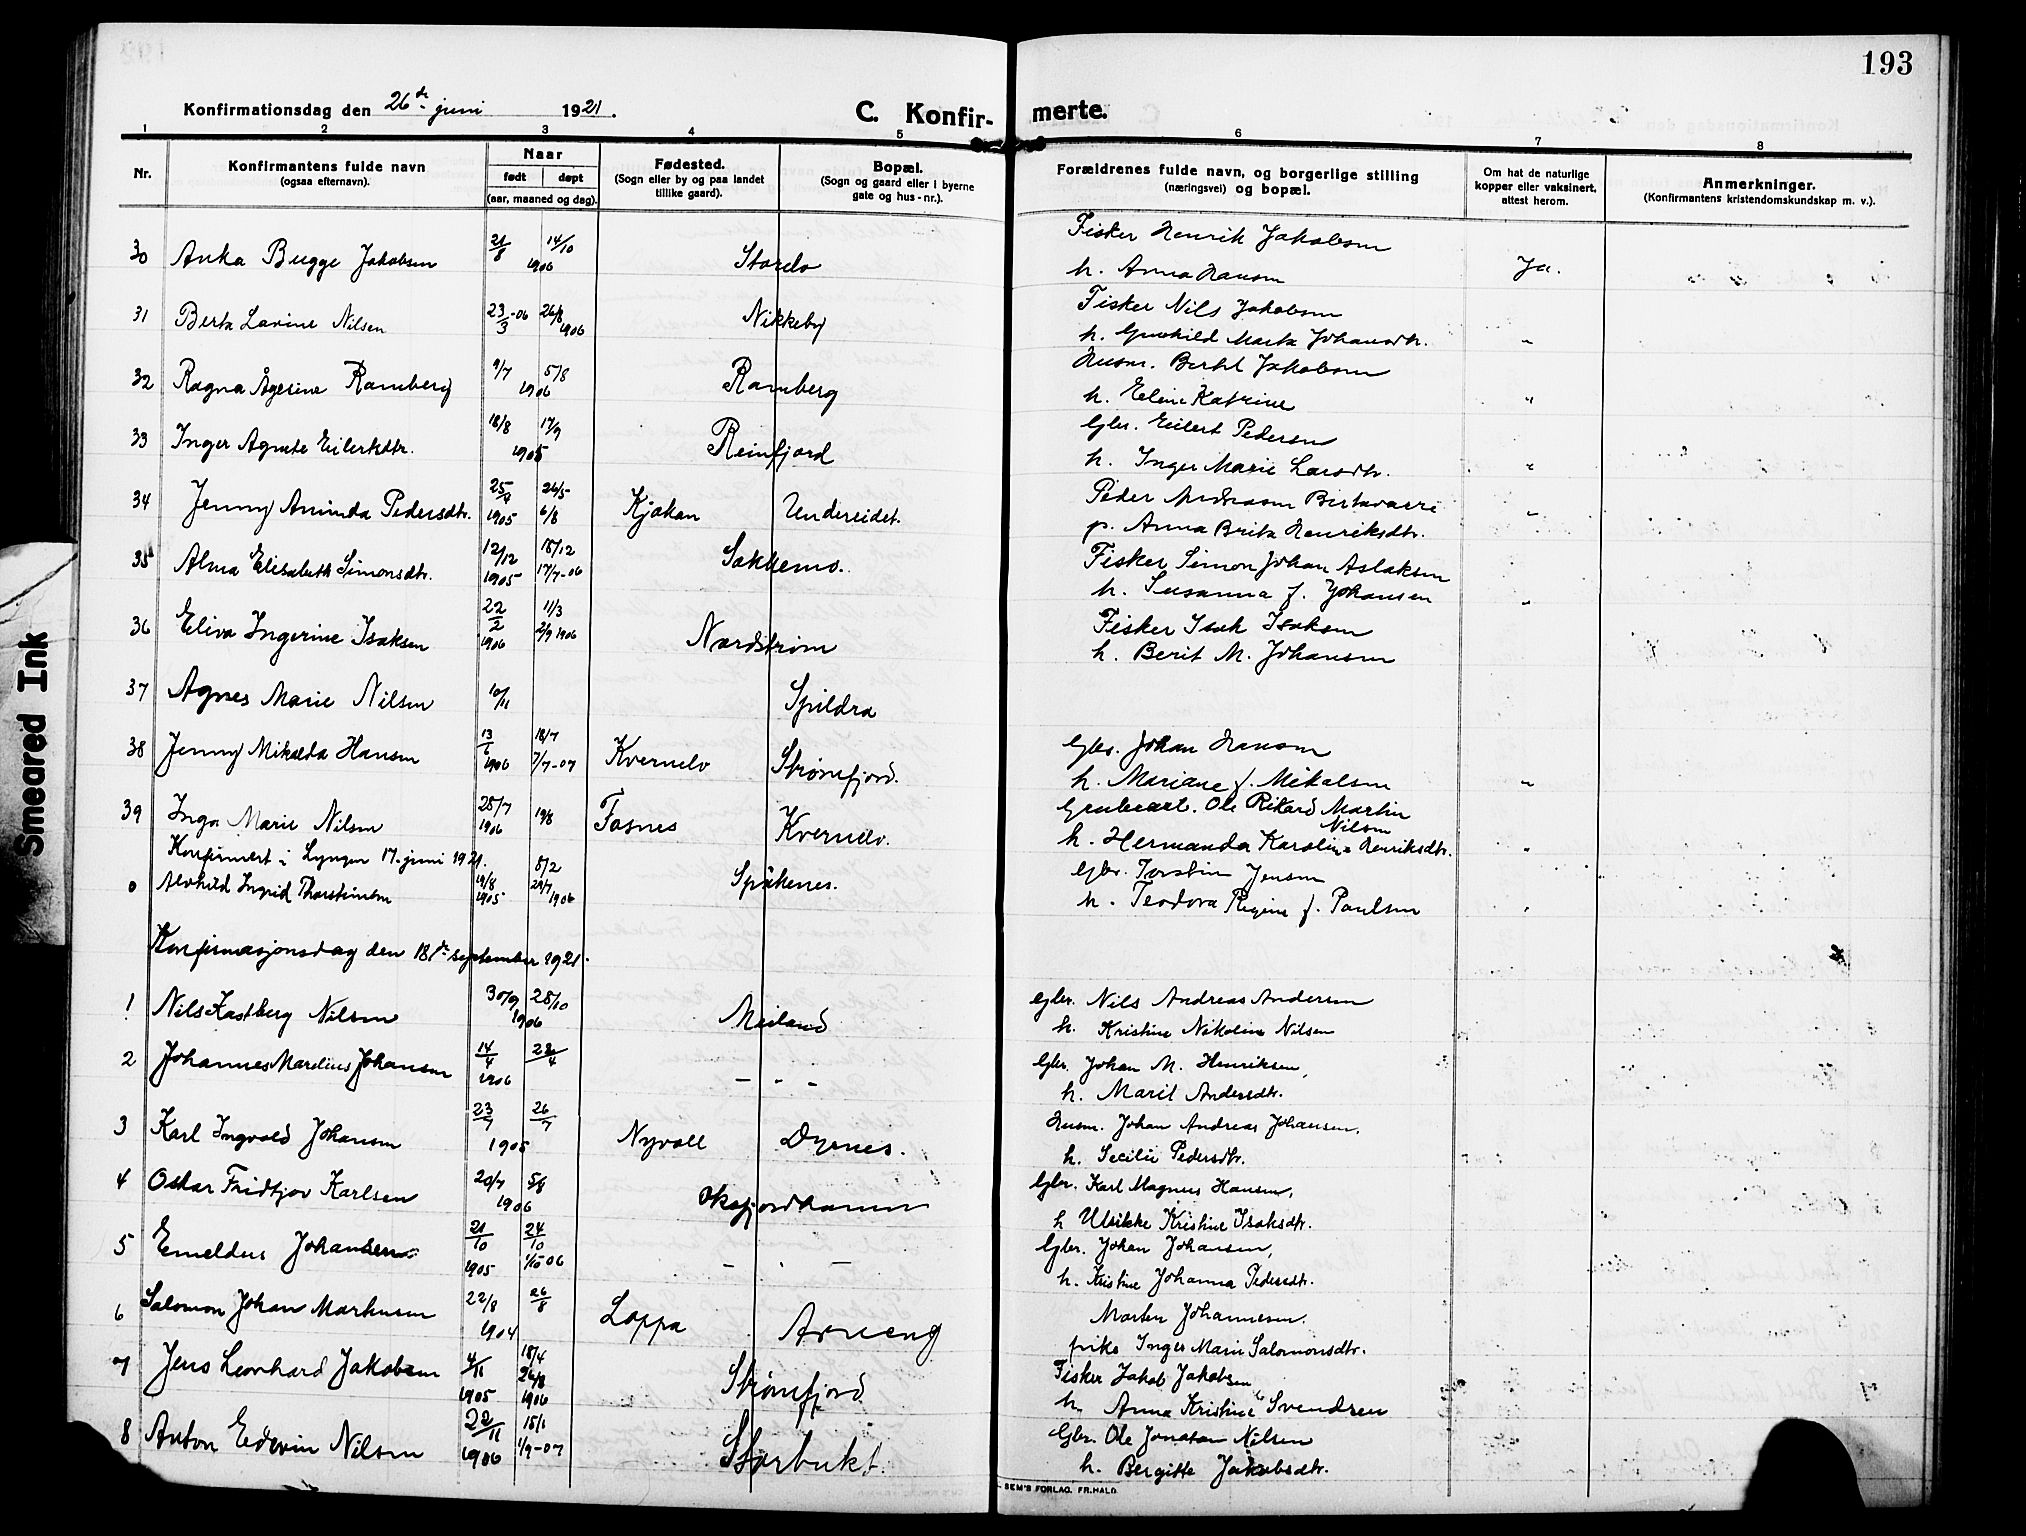 193
Konfirmationsdag den 26de juni 1921.
C. Konfirmerte.
1 2 3 4 5 6 7 8
Nr.
Konfirmantens fulde navn
(ogsaa efternavn).
Naar
født døpt
(aar, maaned og dag).
Fødested.
(Sogn eller by og paa landet
tillike gaard).
Bopæl.
(Sogn og gaard eller i byerne
gate og hus-nr.).
Forældrenes fulde navn, og borgerlige stilling
(næringsvei) og bopæl.
Om hat de naturlige
kopper eller vaksinert,
attest herom.
Anmerkninger.
(Konfirmantens kristendomskundskap m. v.).
30 Anka Bugge Jakobsen 21/8 14/10 1906 Storelv Fisker Henrik Jakobsen
h. Anna Hansen Ja.
31 Berta Lavine Nilsen 23/3-06 26/8 1906 Nikkeby Fisker Nils Jakobsen
h. Gunhild Marta Johansdtr. "
32 Ragna Ågesine Ramberg 9/7 5/8 1906 Ramberg Husm. Bertel Jakobsen
h. Eline Katrine "
33 Inger Agnete Eilertsdtr. 18/8 17/9 1905 Reinfjord Gbr. Eilert Pedersen
h. Inger Marie Larsdtr. "
34 Jenny Aminda Pedersdtr. 25/7 1905 26/5 6/8 Kjækan Undereidet. Peder Andreasen Birtavarre
p. Anna Brita Henriksdtr. "
35 Alma Elisabeth Simonsdtr. 12/12 1905 18/12 17/7-06 Sakkemo. Fisker Simon Johan Aslaksen
h. Susanna f. Johansen "
36 Eliva Ingerine Isaksen 22/2 1906 11/3 2/9 1906 Nordstrøm Fisker Isak Isaksen
h. Berit M. Johansen
37 Agnes Marie Nilsen 10/11 Spildra
38 Jenny Mikalda Hansen 13/6 1906 18/7 7/7-07 Kvernelv Strømfjord. Gbr. Johan Hansen
h. Mariane f. Mikalsen "
39 Inga Marie Nilsen 28/7 1906 19/8 Fosnes Kvernelv. Grubearb. Ole Rikard Martin
Nilsen
h. Hermanda Karoline Henriksdtr. "
Konfirmert i Lyngen 17. juni 1921.
0 Alvhild Ingrid Thorsteinsen 19/8 1905 8/2 29/7 1906 Spåkenes. Gbr. Torstein Jensen
h. Teodora Regine f. Paulsen "
Konfirmasjonsdag den 18de september 1921.
1 Nils Kastberg Nilsen 30/9 28/10 1906 Meiland Gbr. Nils Andreas Andersen
h. Kristine Nikoline Nilsen
2 Johannes Marelius Johansen 14/4 1906 28/4 - " - Gbr. Johan M. Henriksen,
h. Marit Andersdtr.
3 Karl Ingvald Johansen 23/7 26/7 1905 Nyvoll Dyrnes. Husm. Johan Andreas Johansen,
h. Secilie Pedersdtr.
4 Oskar Fridtjov Karlsen 20/7 5/8 1906 Oksfjordhamn Gbr. Karl Magnus Hansen,
h Ulrikke Kristine Isaksdtr.
5 Emeldus Johansen 21/10 1905 24/10 1/10-06 - " - Gbr. Johan Johansen,
h. Kristine Johanna Pedersdtr.
6 Salomon Johan Markusen 22/8 26/8 1904 Loppa Arneng Morten Johannesen.
pike Inger Marie Salomonsdtr.
7 Jens Leonhard Jakobsen 4/11 1905 18/4 26/8 1906 Strømfjord Fisker Jakob Jakobsen
h. Anna Kristine Svendsen
8 Anton Edevin Nilsen 22/11 1906 15/1 1/9-07 Storbukt. Gbr. Ole Jonatan Nilsen
h. Bergitte Jakobsdtr.
SEM'S FORLAG. FR.HALD.
Smeared Ink